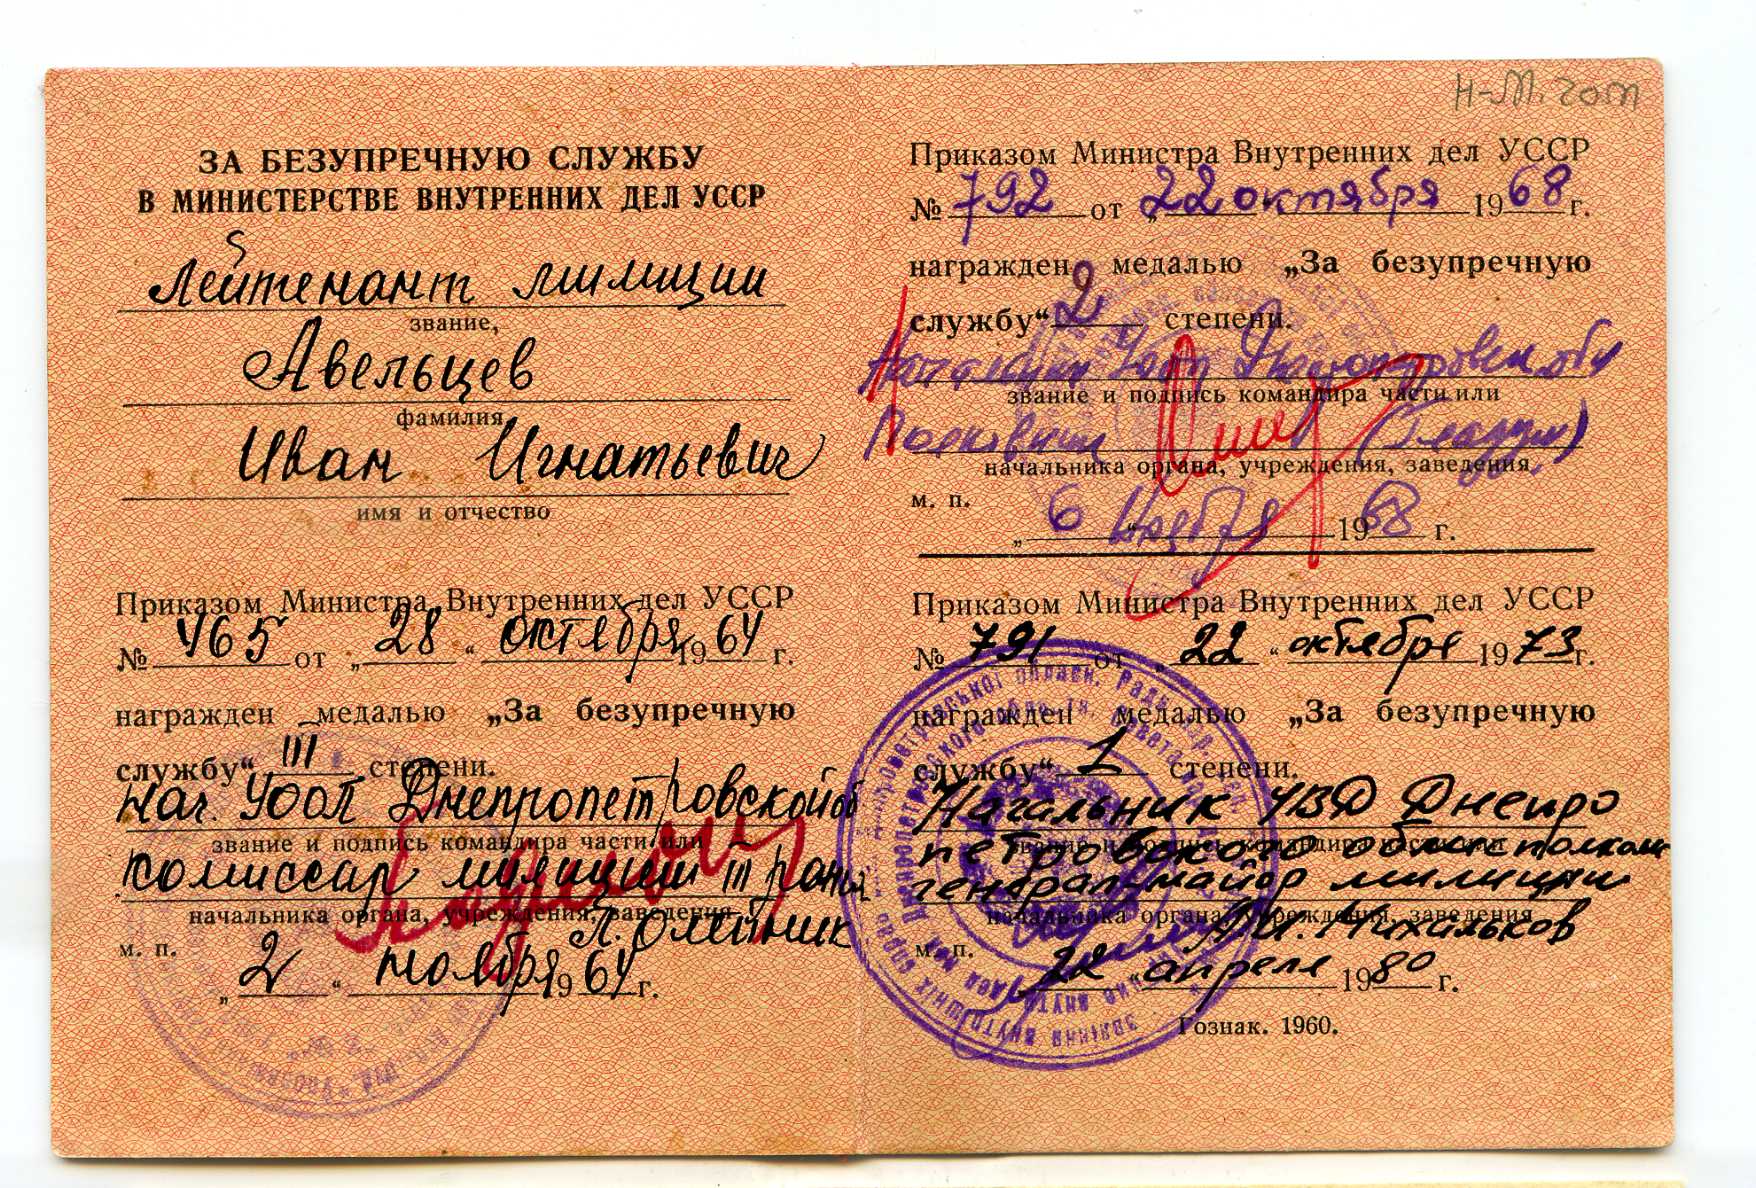 ЗА БЕЗУПРЕЧНУЮ СЛУЖБУ
В МИНИСТЕРСТВЕ ВНУТРЕННИХ ДЕЛ УССР
Лейтенант милиции
звание,
Авельцев
фамилия,
Иван Игнатьевич
имя и отчество
Приказом Министра Внутренних дел УССР
№ 465 от „28“ октября 1964 г.
награжден медалью „За безупречную
службу“ III степени.
Нач. УООП Днепропетровской об
звание и подпись командира части или
комиссар милиции III ранга
начальника органа, учреждения, заведения
Л. Олейник
м. п.
„2“ ноября 1964 г.
Н-М. 20т
Приказом Министра Внутренних дел УССР
№ 792 от „22 октября 1968 г.
награжден медалью „За безупречную
службу“ 2 степени.
звание и подпись командира части или
Полковник
начальника органа, учреждения, заведения
м. п.
„6“ ноября 1968 г.
Приказом Министра Внутренних дел УССР
№ 791 от „22“ октября 1973 г.
награжден медалью „За безупречную
службу“ 1 степени.
Начальник УВД Днепро
петровского облисполкома
звание и подпись командира части или
генерал-майор милиции
начальника органа, учреждения, заведения
м. п.
„22“ апреля 1980 г.
Гознак. 1960.